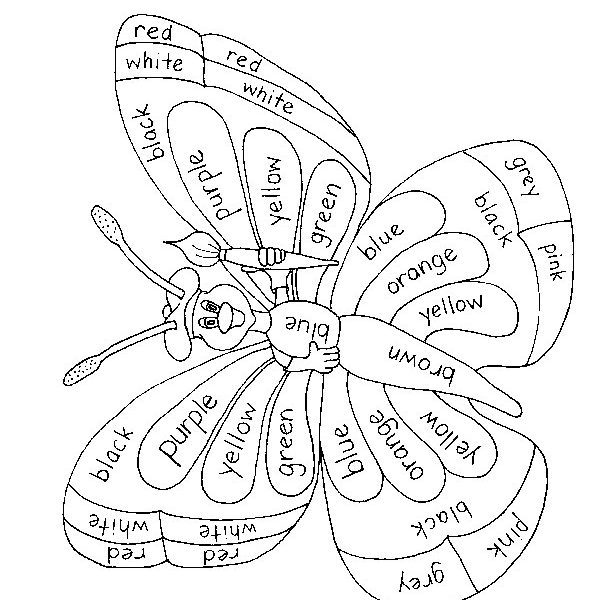 red
red
white
white
black
purple
yellow
green
grey
black
pink
blue
orange
yellow
blue
brown
black
purple
yellow
green
blue
orange
yellow
white
white
red
red
black
pink
grey